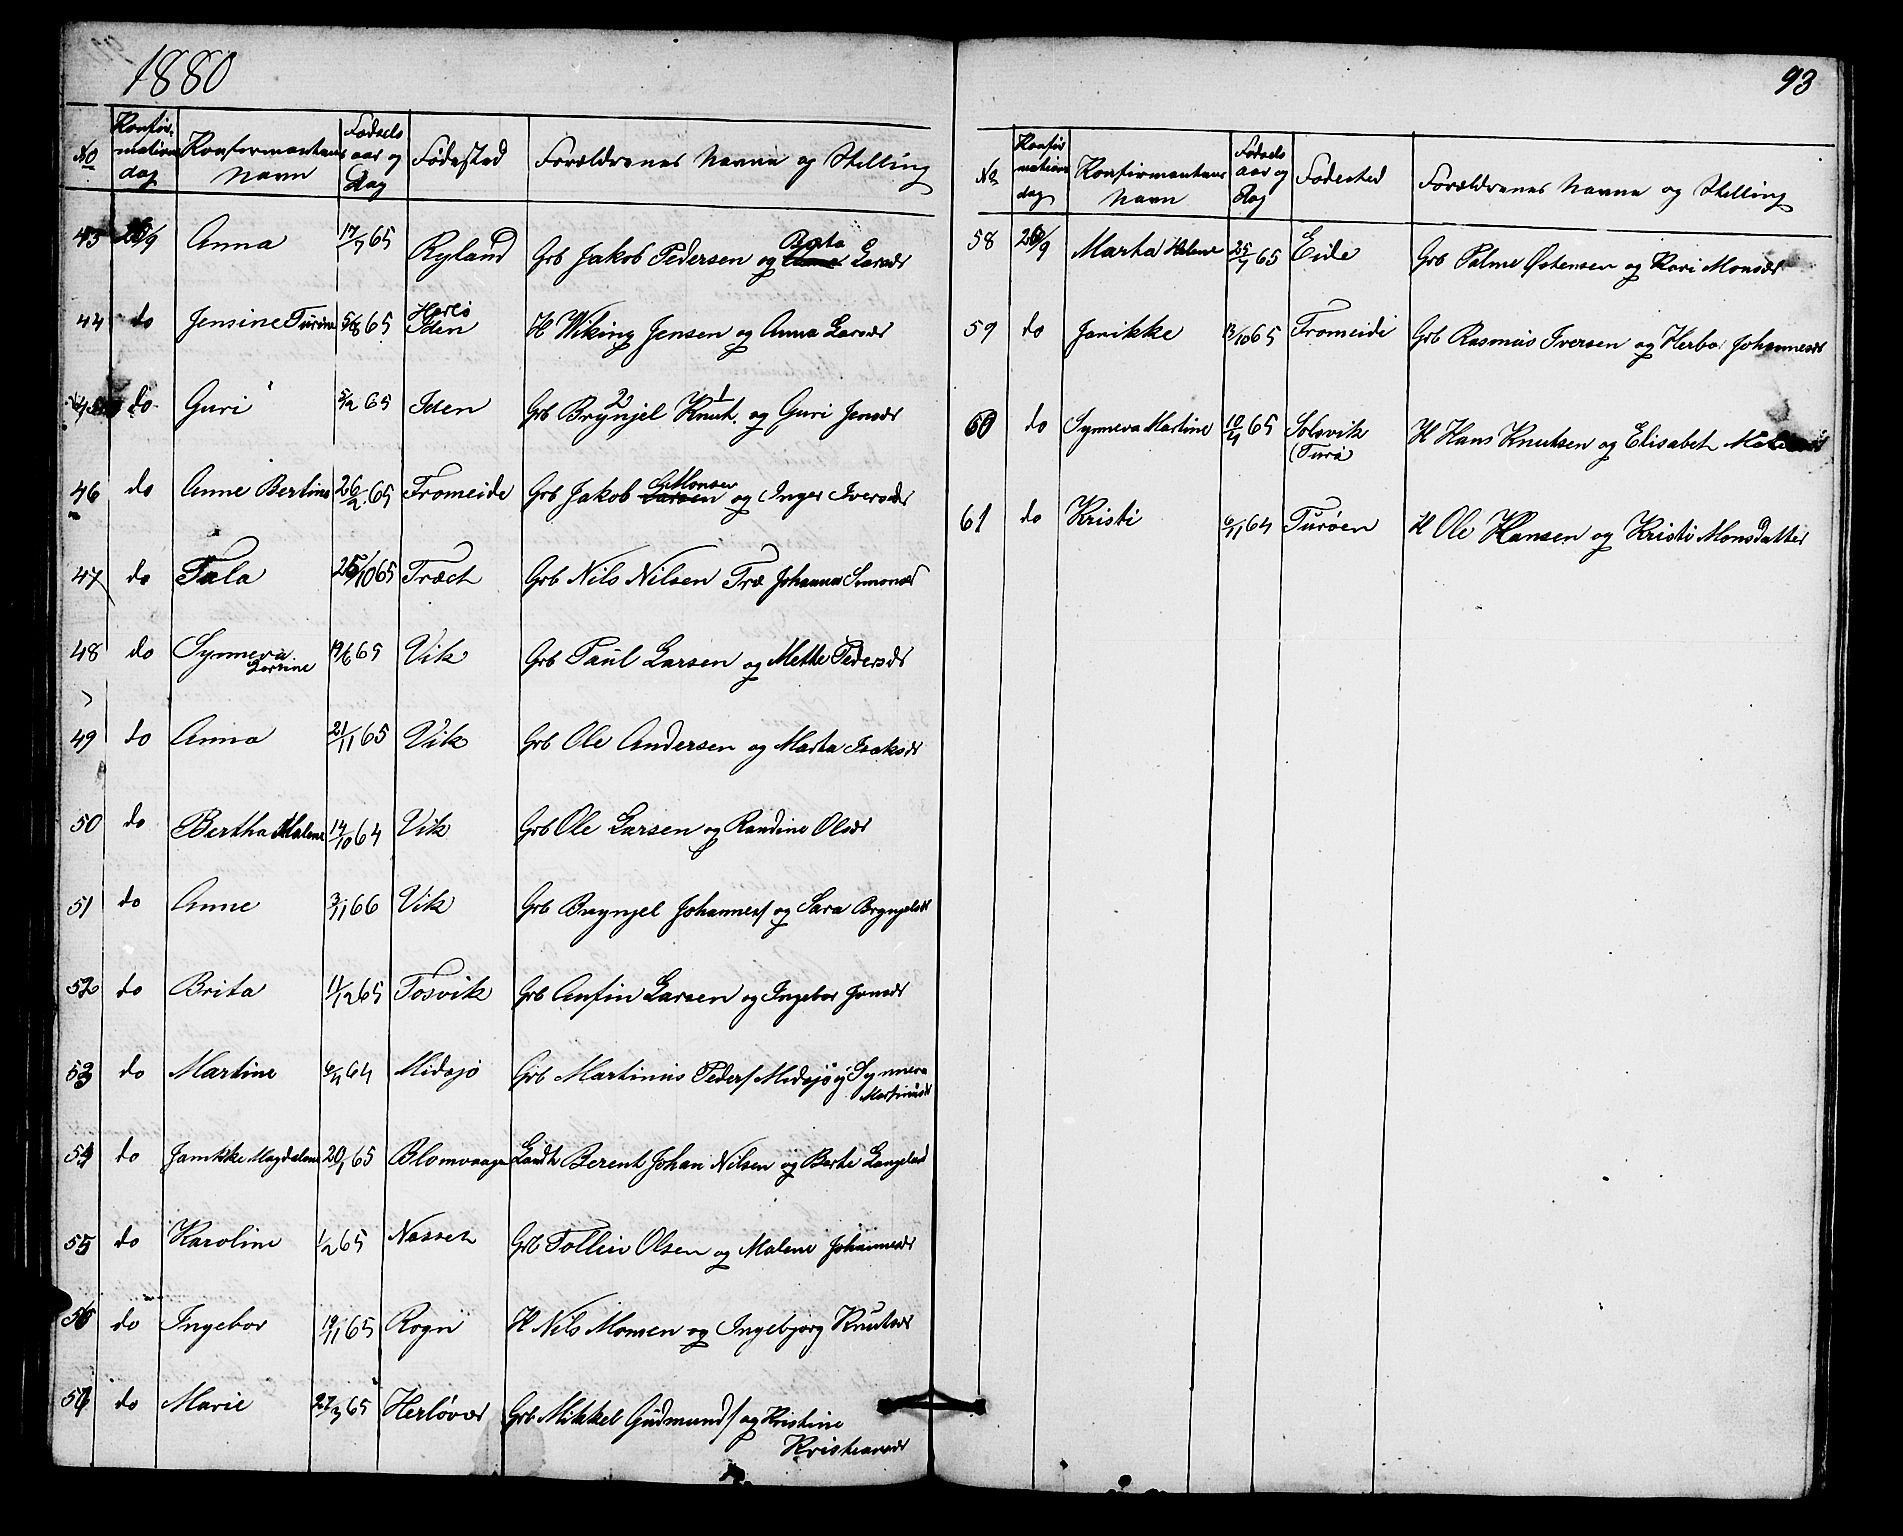 1880
93
No Konfir- mations dag Konfirmantens Navn Fødsels aar og Dag Fødested Forældrenes Navne og Stilling
43 26/9 Anna 17/7 65 Ryland Grb Jakob Pedersen og Berta Larsdr
44 do Jensine Turine 5/8 65 Herlø Iden H Wiking Jensen og Anna Larsdr
45 do Guri 5/2 65 Iden Grb Brynjel Knut. og Guri Jensdr
46 do Anne Bertine 26/2 65 Fromeide Grb Jakob Larsen Monsen og Inger Iversdr
47 do Tala 25/10 65 Træet Grb Nils Nilsen Træ Johanna Simonsdr
48 do Synneva 19/6 65 Vik Grb Paul Larsen og Mette Pedersdr
49 do Anna 21/11 65 Vik Grb Ole Andersen og Marta Isaksdr
50 do Bertha Malene 14/10 64 Vik Grb Ole Larsen og Randine Olsdr
51 do Anne 3/1 66 Vik Grb Brynjel Johannes/ og Sara Brynjelsdr
52 do Brita 11/12 65 Tosvik Grb Anfin Larsen og Ingebor Jonsdr
53 do Martine 64 Midsjø Grb Martinus Peders/ Midsjø og Synneva
Martinusdr
54 do Jannikke Magdalene 20/1 65 Blomvaagen Landh Berent Johan Nilsen og Berte Langeland
55 do Karoline 1/2 65 Nesset Grb Tollein Olsen og Malene Johannesdr
56 do Ingebor 19/11 65 Rogn H Nils Monsen og Ingebjorg Knutsdr
57 do Marie 27/3 65 Herløvær Grb Mikkel Gudmunds/ og Kristine
Kristiansdr
No Konfir mations dag Konfirmantens Navn Fødsels aar og Dag Fødested Forældrenes Navne og Stilling
58 26/9 Marta Helene 25/7 65 Eide Grb Palme Østensen og Kari Monsdr
59 do Janikke 13/10 65 Fromeide Grb Rasmus Iversen og Herbor Johannesdr
60 do Synneva Martine 65 Solsvik H Hans Knutsen og Elisabet
(Turø
61 do Kristi 64 Turøen H Ole Hansen og Kristi Monsdatter